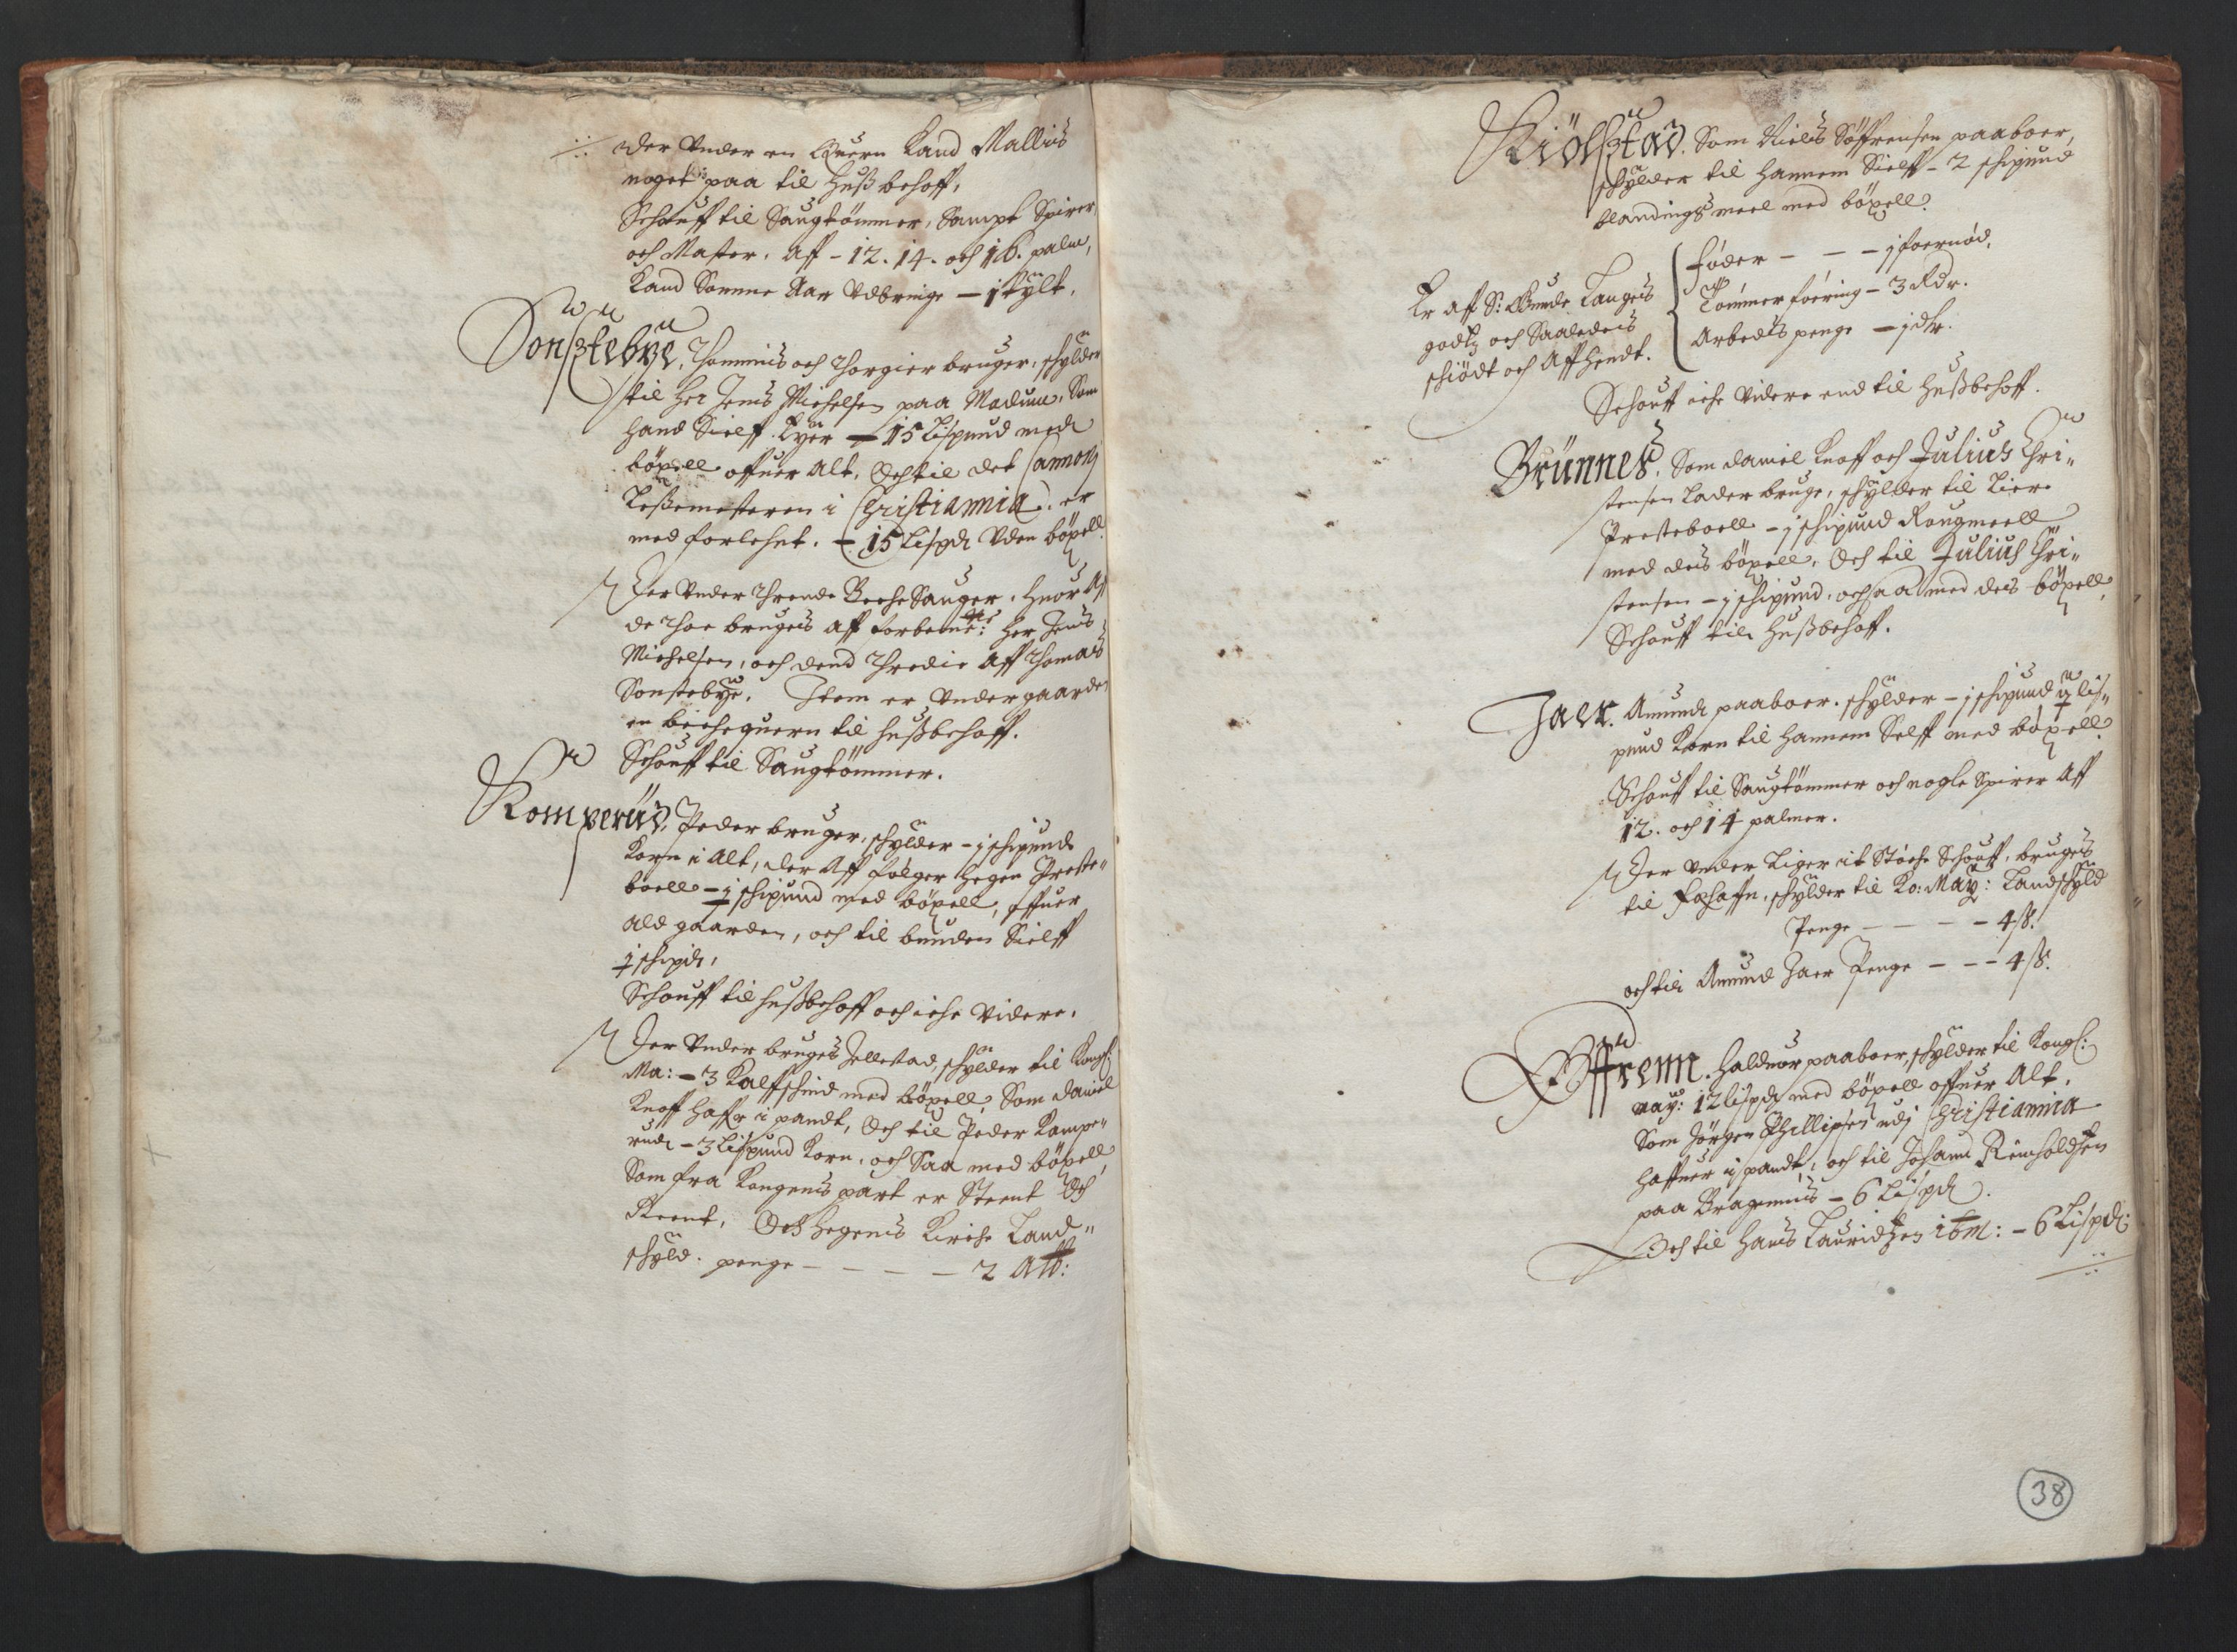 Der Under en Quern Kand Mallis
noget paa til Hußbehoff,
Schouff til Saugtømmer, Sampt Spirer,
och Master, Aff - 12. 14. och 16. palm,
Kand Somme Aar Udbringe - j tylt,
Sonstebye, Thommis och Thorgier bruger, schylder
til Her Jens Michelsen paa Modum, Som
hand Sielff Eyer - 15 Lispund med
böxell offuer Alt, Och til det Canonj
Leßemesteren i Christiannia er
med forlehnt. - 15 Lispd Uden böxell.
Der Under Thrende Becke Sauger, Huor Aff
de Thoe brugis aff forbemte: Her Jens
Michelsen, och dend Thredie Aff Thomas
Sonstebye. Item er Under gaarden
en beche quern til Hußbehoff.
Schouff til Saugtömmer.
Komperud, Peder bruger, schylder - j schipund
Korn i Alt, der Aff følger Hegen Preste„
boell - ½ schipund med böxell, offuer
ald gaarden, och til bunden Sielff
½ schipd,
Schouff til Hußbehoff och iche Videre.
Der Under bruges Jellestad, schylder til Kongl:
Ma: - 3 Kalffschind med böxell, Som Daniel
Knoff Haffr i pandt, Och til Peder Kompe„
rud - 3 Lispund Korn, och Saa med böxell
Som fra Kongens part er
Och Hegens Kirche Land„
schyld. penge - - - - 2 Alb:
Kiölstad. Som Niels Søffrensen paaboer,
schylder til Hannem Sielff - 2 schipund
blandings meel med böxell.
Er aff S: Gunde Langes
godtz och Saaledes
schiödt och Affhendt.
føder - - - j foernød,
Tømmerføering - 3 Rdr.
Arbeds penge - j dlr.
Schouff iche Videre end til Hußbehoff.
Brünnes, Som Daniel Knoff och Julius Chri„
stensen Lader bruge, schylder til Lier
Presteboell - j schipund Rougmeell
med des böxell, Och til Julius Chri„
stensen - j schipund, och saa med des böxell,
Schouff til Hußbehoff.
Jaer. Amund paaboer, schylder - j schipund ½ lis„
pund Korn til Hannem Selff med böxell.
Schouff til Saugtømmer och nogle Spirer Aff
12. och 14 palmer.
Der Under Liger it Støche Schouff, bruges
til Fæhaffn, schylder til Ko: May: Landschyld
Penge - - - - 4 ß.
och til Amund Jaer Penge - - - 4 ß.
Haldvor paaboer, schylder til Kongl:
May: 12 lispd med böxell offuer Alt,
Som Jørgen Phillipsen udj Christiannia
haffuer i pandt, och til Johan Reinholdsen
paa Bragennis - 6 Lispd.
Och til Hans Lauridtzen ibm: - 6 Lispd:
38